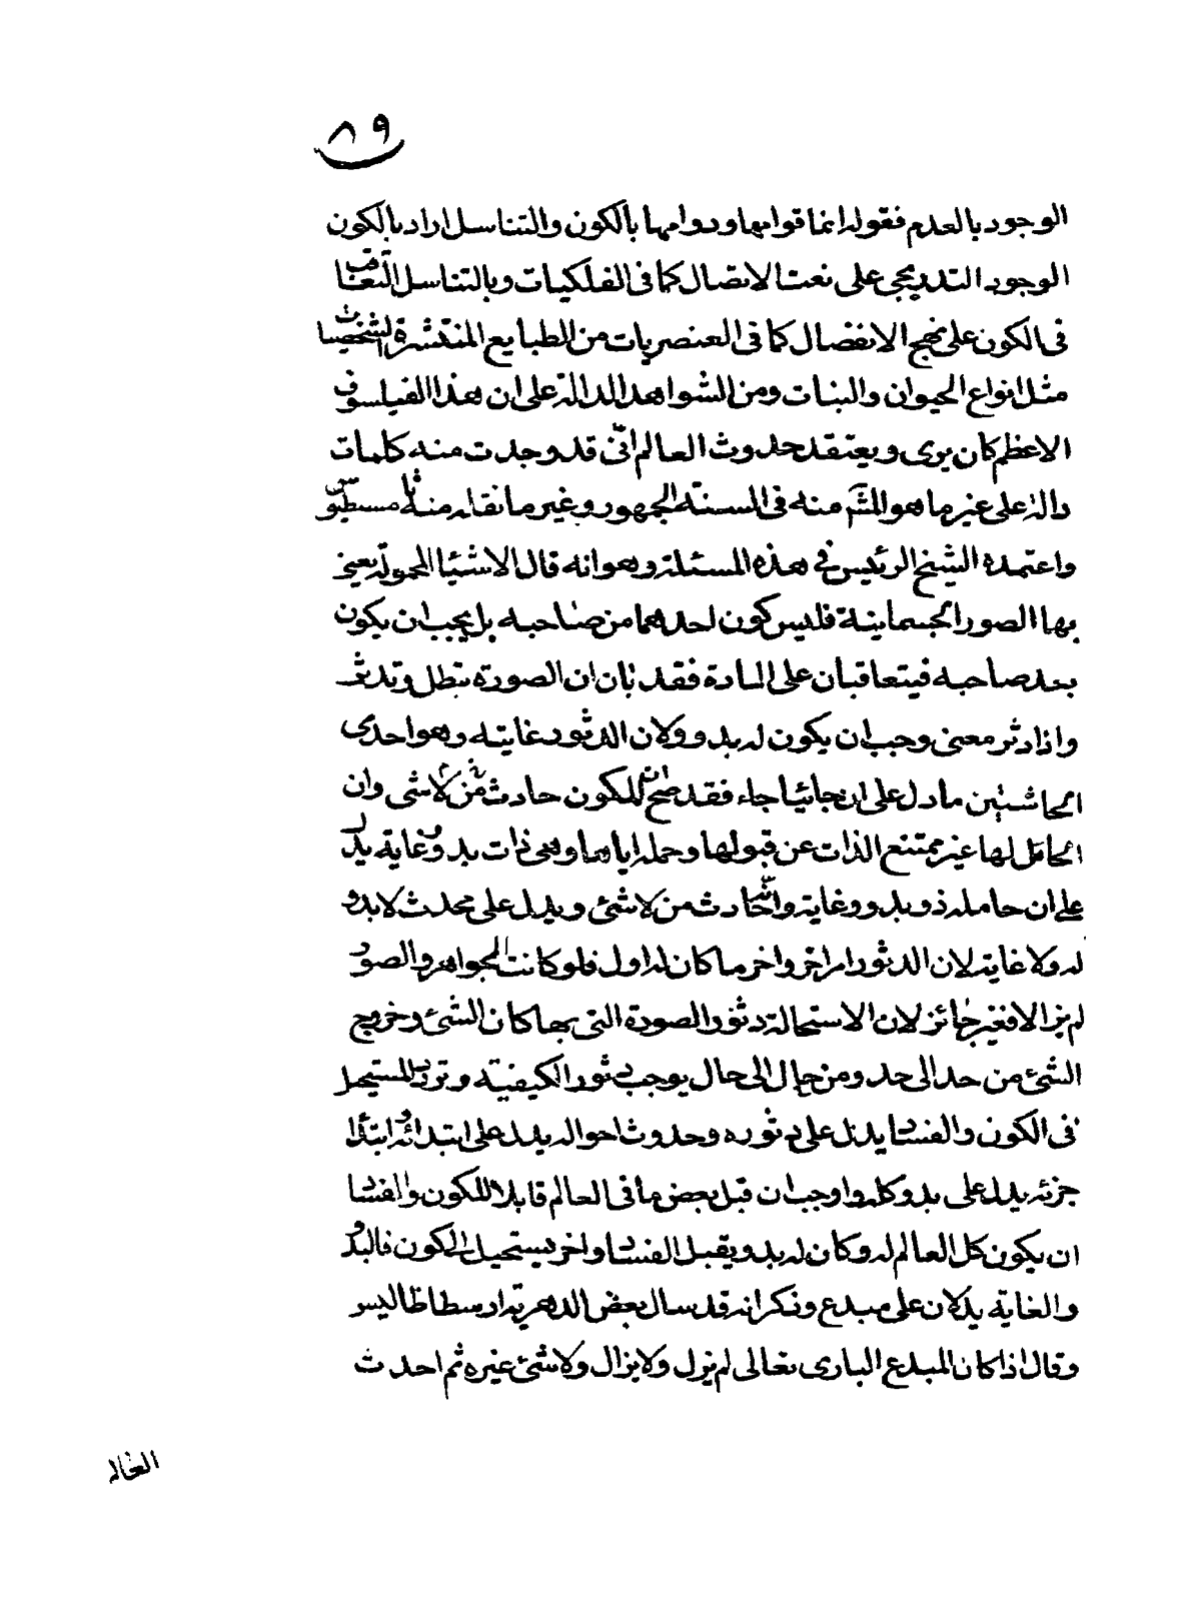 ٨٩
الوجود بالعدم فقوله انما قوامها ودوامها بالكون والتناسل اراد بالكون
الوجود التدريجى على نعت الاتصال كما فى الفلكيات وبالتناسل التعاقب
فى الكون على نهج الانفصال كما فى العنصريات من الطبايع المنتشرة الشخصيات
مثل انواع الحيوان والنبات ومن الشواهد الدالة على ان هذا الفيلسوف
الاعظم كان يرى ويعتقد حدوث العالم انى قد وجدت منه كلمات
دالة على غير ما هو المشهر منه فى السنة الجمهور وغير ما نقله منه ثامسطيوس
واعتمده الشيخ الرئيس فى هذه المسئلة وهو انه قال الاشيا المحمولة يعنى
بها الصور الجسمانية فليس كون احدهما من صاحبه بل يجب ان يكون
بعد صاحبه فيتعاقبان على المادة فقد بان ان الصورة تبطل وتدثر
واذا دثر معنى وجب ان يكون له بدو ولان الدثور غاية وهو احدى
الحاشيتين ما دل على ان جائيا جاء فقد صح ان للكون حادث من لاشى وان
الحامل لها غير ممتنع الذات عن قبولها وحمله اياها وهى ذات بدو وغاية يدل
على ان حامله ذو بدو وغاية وانه حادث من لاشئ ويدل على محدث لا بدو
له ولا غاية لان الدثور اخر واخر ما كان له اول فلو كانت الجواهر والصور
لم يزالا فغير جائز لان الاستحالة دثور الصورة التى بها كان الشئ وخروج
الشئ من حد الى حد ومن حال الى حال يوجب دثور الكيفية وتردد المستحيل
فى الكون والفساد يدل على دثوره وحدوث احواله يدل على ابتدائه وابتداء
جزئه يدل على بدو كله واوجب ان قبل بعض ما فى العالم قابلا للكون والفساد
ان يكون كل العالم له وكان له بدو يقبل الفساد واخر يستحيل الى كون فالبدو
والغاية يدلان على مبدع ونكر انه قد سال بعض الدهرية ارسطاطاليس
وقال اذا كان المبدع البارى تعالى لم يزل ولا يزال ولا شئ غيره ثم احدث
العالم